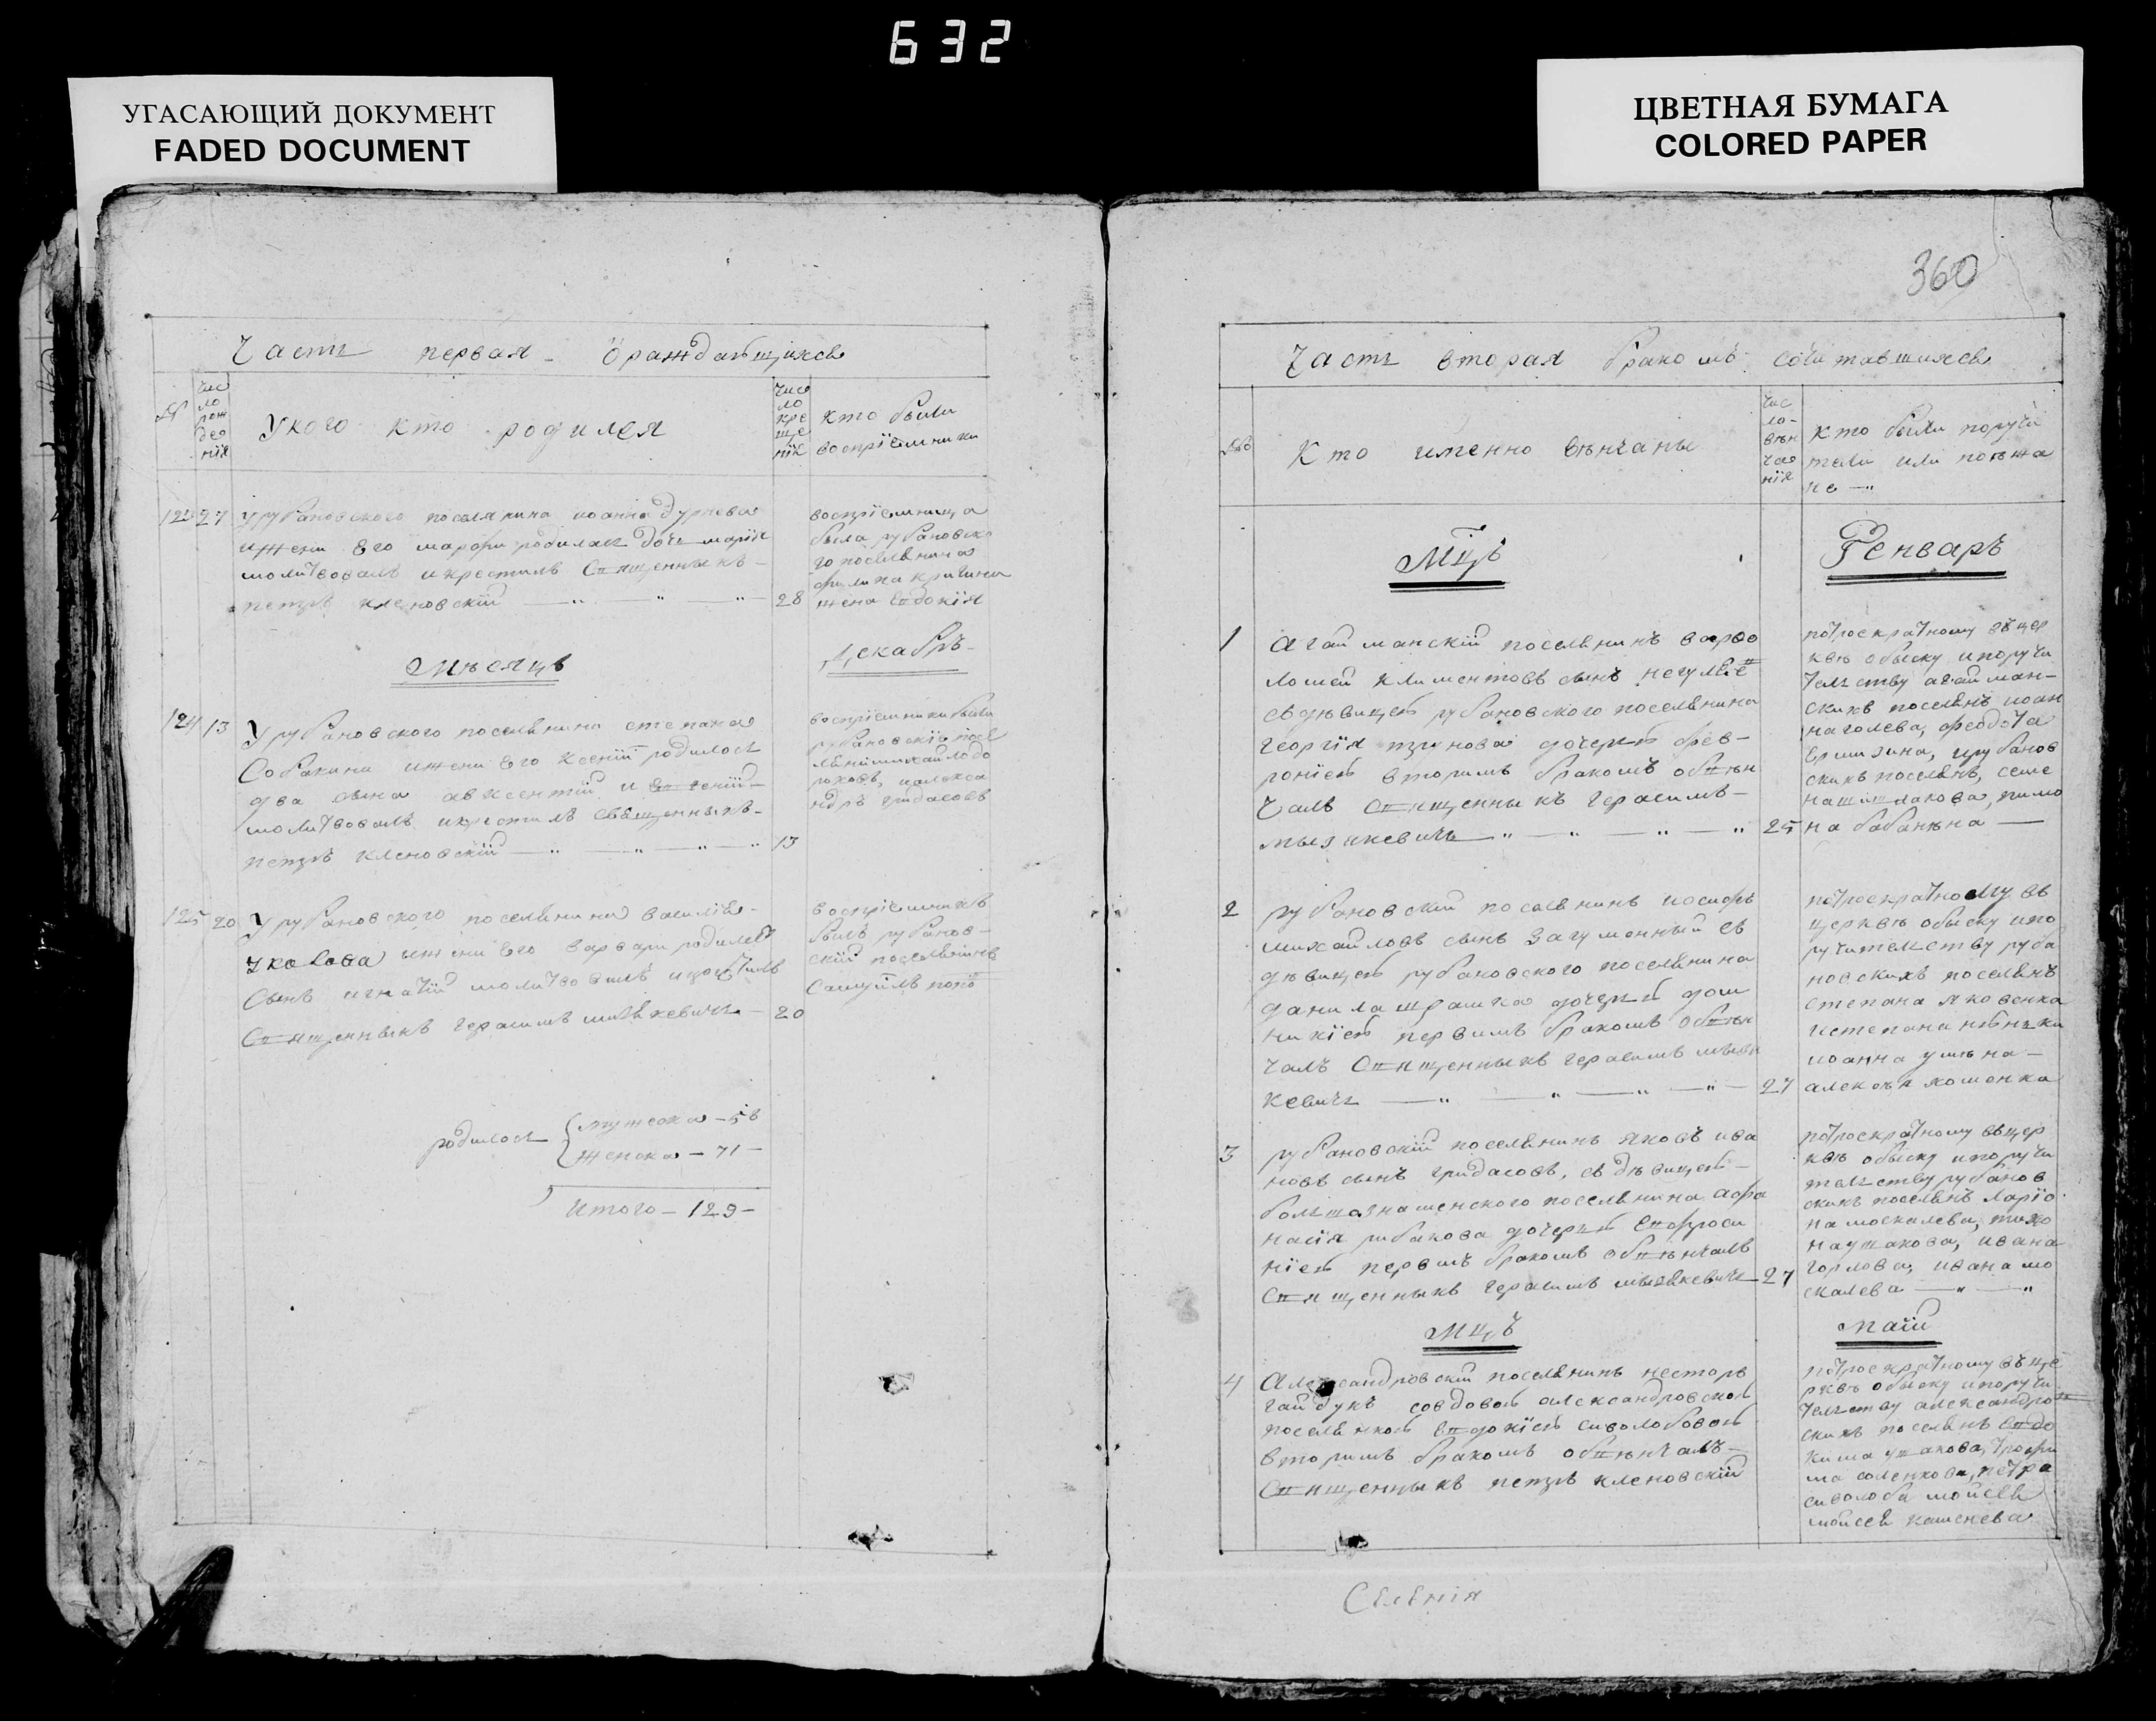 632
УГАСАЮЩИЙ ДОКУМЕНТ
FADED DOCUMENT
ЦВЕТНАЯ БУМАГА
COLORED PAPER
Часть первая
№
чис
ло
рож
де
нія
У кого кто родился
чис
ло
кре
ще
нія
кто были
воспріемники
123 27
У рубановского поселянина иоанна дурнева
и жени Его марѳи родилась дочь марія
молитвовалъ и крестилъ Священныкъ
петръ кленовскій
28
воспріемница
была рубановско
го поселянина
филипа
жена Евдокія
Мѣсяцъ
Декабрь
124 13
У рубановского поселянина степана
Собакина и жени Его Ксеніи родилось
два сына авксентій и Евгеній
молитвовалъ и крестилъ Священныкъ
петръ кленовскій
13
воспріемники были
рубановскіе посе
ляни михайло до
роховъ, и алекса
ндръ гридасовъ
125 20
У рубановского поселянина василія
жени Его варвари родился
Сынъ игнатій молитвовалъ и крестилъ
Священныкъ герасимъ
20
воспріемникъ
билъ рубанов
скій поселянинъ
Самуилъ
родилось
мужска – 58
женска – 71 –
Итого – 129 –
360
Часть вторая бракомъ сочитавшихся
№
Кто именно вѣнчаны
чис
ло
вѣн
ча
нія
Кто были поручи
тели или поѣжа
не
Мцъ
Генварь
1
Агайманскій поселянинъ варѳо
ломей климентовъ сынъ
съ дѣвицею рубановского поселянина
георгія дочерью фев
роніею вторимъ бракомъ обвѣн
чалъ Священныкъ герасимъ
25
по троекратному въ цер
квѣ обыску и поручи
тельству агайман
скихъ поселянъ иоан
на голева, феодота
и рубанов
скихъ поселянъ, семе
на шишлакова, пимо
на
2
рубановскій поселянинъ иосифъ
михайловъ сынъ Загуменный съ
дѣвицею рубановского поселянина
данила дочерью дом
никіею первимъ бракомъ обвѣн
чалъ Священныкъ герасимъ
кевичъ
27
по троекратному въ
церквѣ обыску и по
ручительству руба
новскихъ поселянъ
степана яковенка
и степана
иоанна
алексѣя
3
рубановскій поселянинъ яковъ ива
новъ сынъ гридасовъ, съ дѣвицею
большознаменского поселянина афа
насія рибакова дочерью Евфроси
ніею первимъ бракомъ обвѣнчалъ
Священныкъ герасимъ
27
по троекратному въ цер
квѣ обыску и поручи
тельству рубанов
скихъ поселянъ ларіо
на москалева, тихо
на ушакова, ивана
горлова, ивана мо
скалева
Мцъ
Маій
4
Александровскій поселянинъ несторъ
гайдукъ со вдовою александровскою
поселянкою Евдокіею сиволобовою
вторимъ бракомъ обвѣнчалъ
Священныкъ петръ кленовскій
по троекратному въ це
рквѣ обыску и поручи
тельству александро
скихъ поселянъ Евдо
кима ушакова, трофи
ма петра
сиволоба мойсея
мойсея каменева